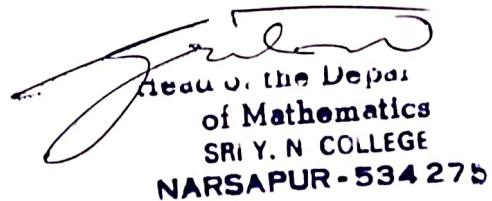 Head of the Depar
of Mathematics
SRI Y. N COLLEGE
NARSAPUR-534 275